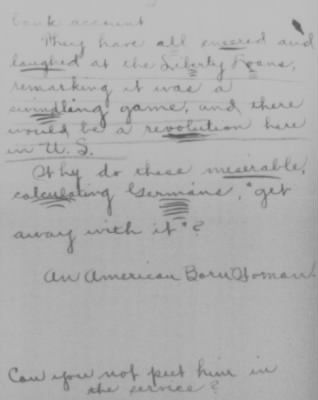 bank account
They have all sneered and
laughed at the Liberty Loans,
remarking it was a
swindling game, and there
would be a revolution here
in U.S.
Why do these miserable,
calculating Germans, "get
away with it"?
An American Born Woman.
Can you not put him in
the service?